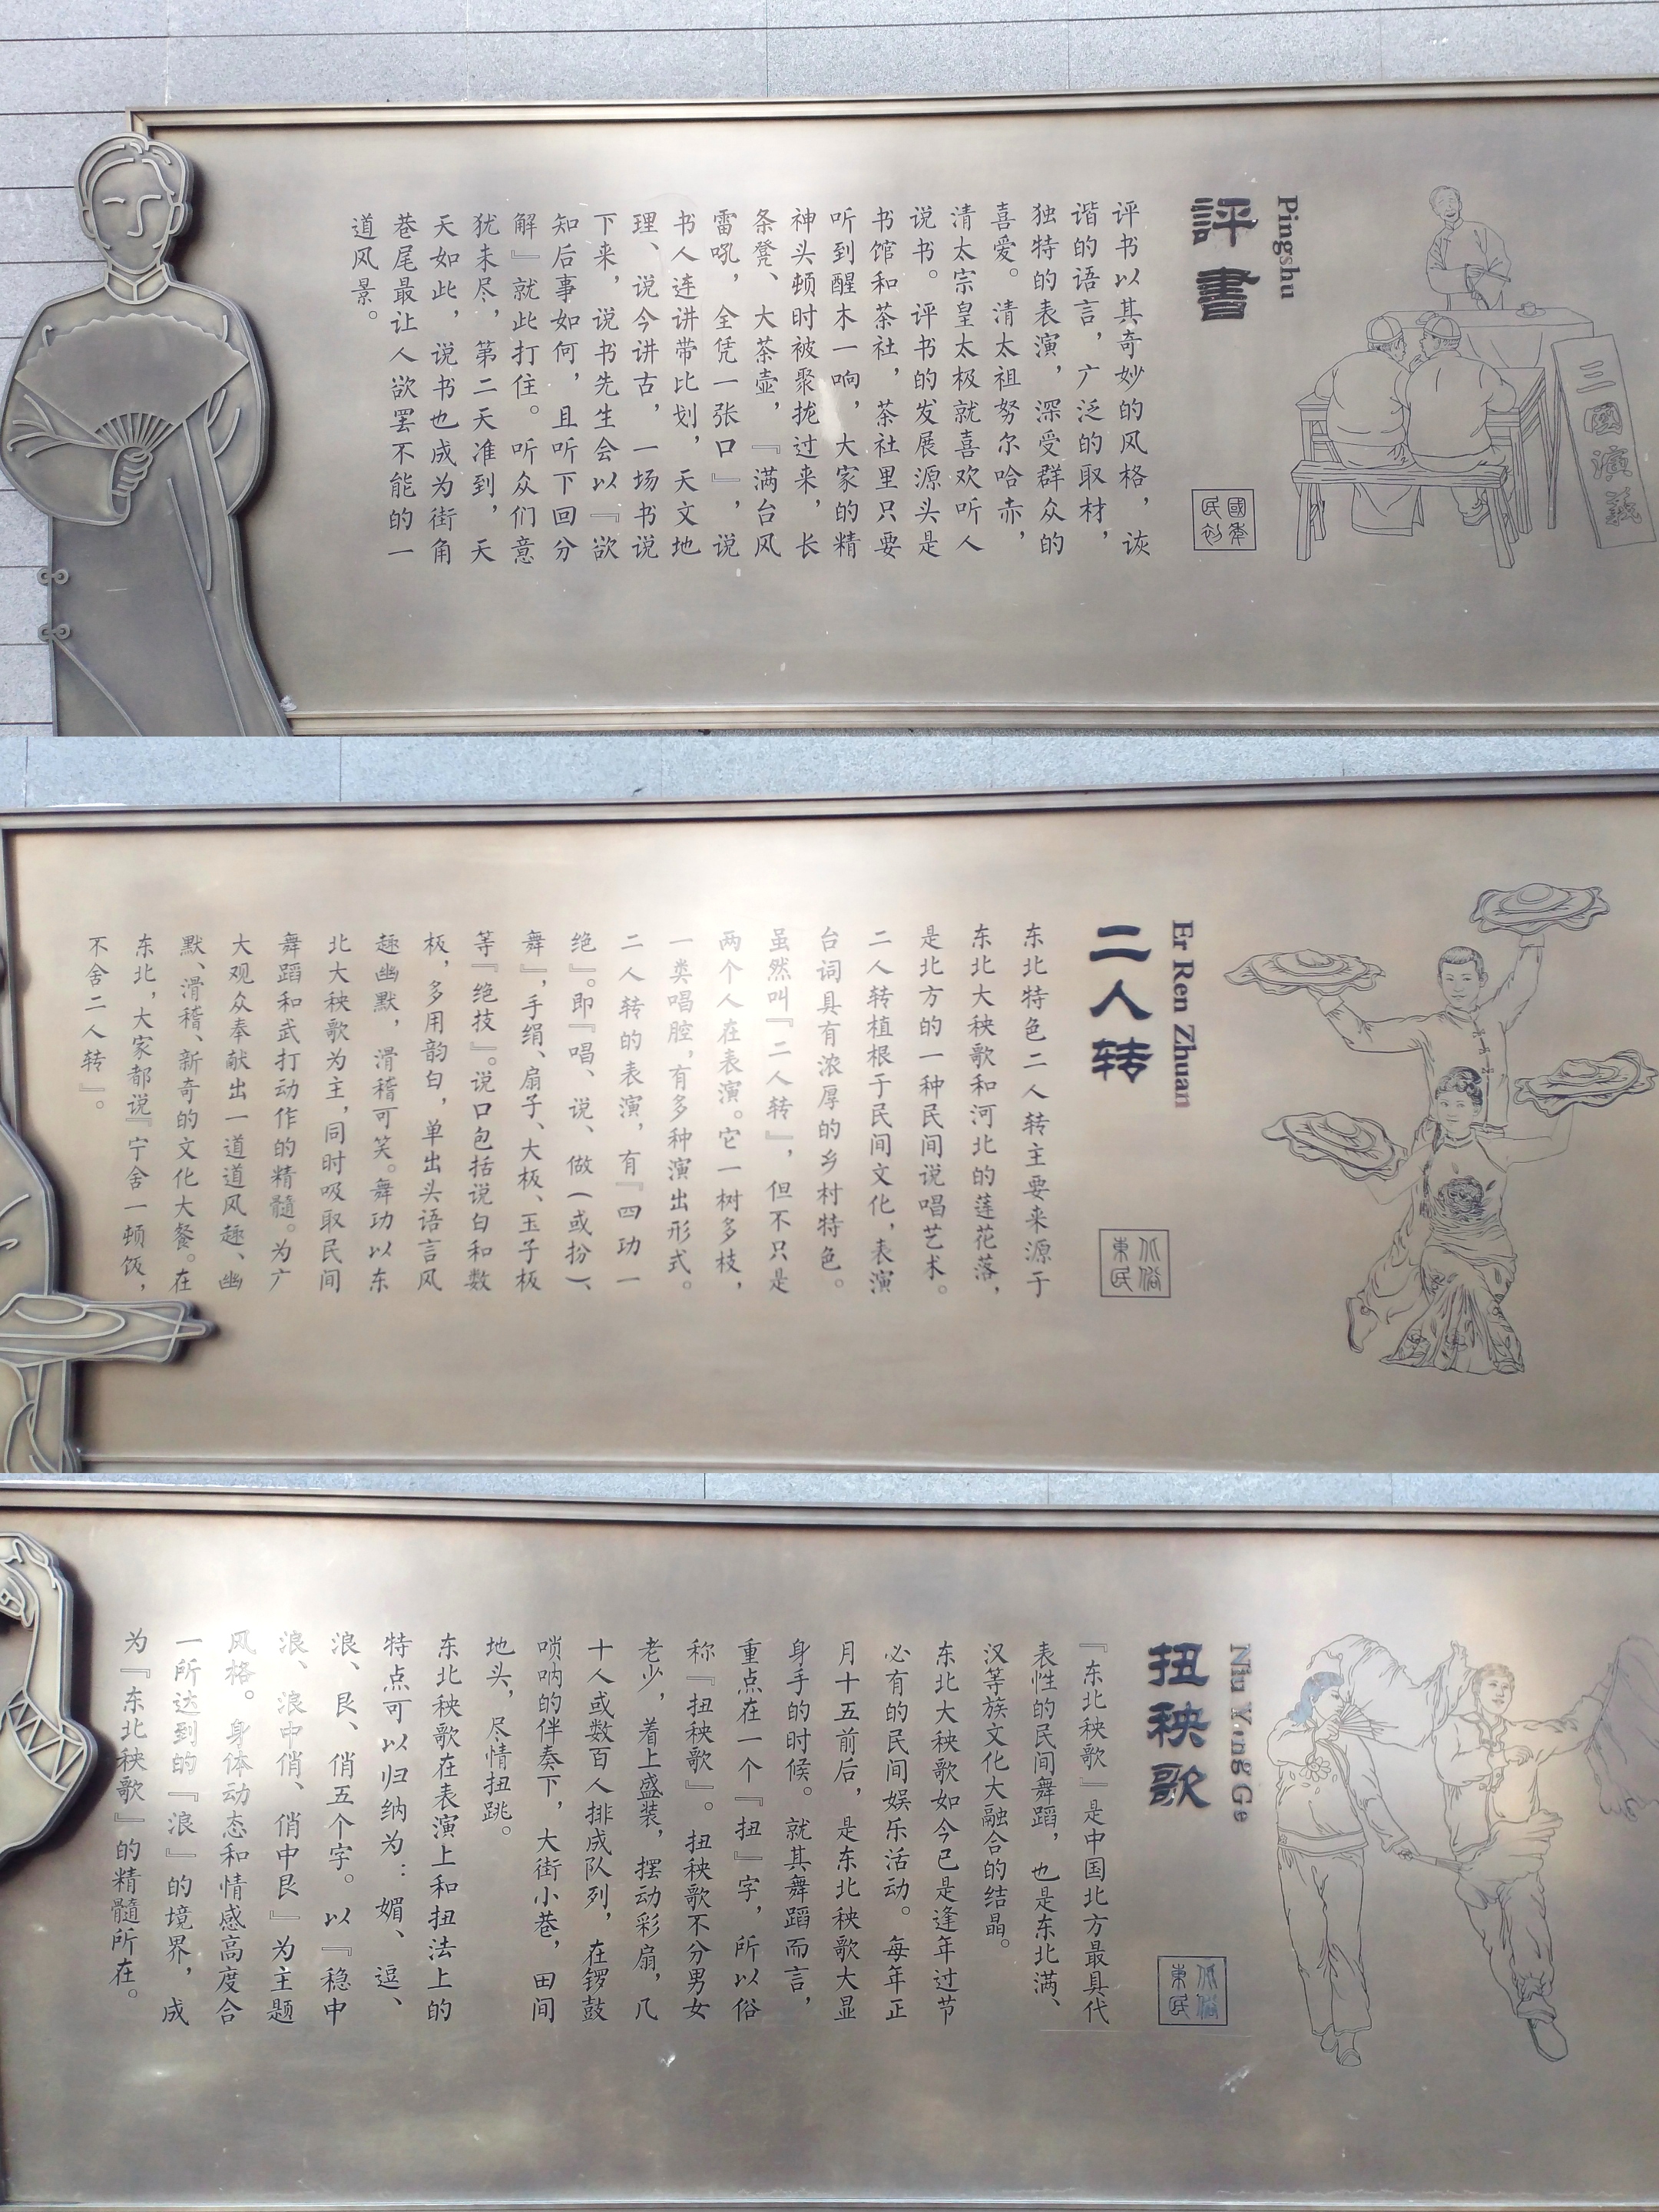 三國演義
Pingshu
評書
评书以其奇妙的风格，诙
谐的语言，广泛的取材，
独特的表演，深受群众的
喜爱。清太祖努尔哈赤，
清太宗皇太极就喜欢听人
说书。评书的发展源头是
书馆和茶社，茶社里只要
听到醒木一响，大家的精
神头顿时被聚拢过来，长
条凳、大茶壶，『满台风
雷吼，全凭一张口』，说
书人连讲带比划，天文地
理、说今讲古，一场书说
下来，说书先生会以『欲
知后事如何，且听下回分
解』就此打住。听众们意
犹未尽，第二天准到，天
天如此，说书也成为街角
巷尾最让人欲罢不能的一
道风景。
Er Ren Zhuan
二人转
东北特色二人转主要来源于
东北大秧歌和河北的莲花落，
是北方的一种民间说唱艺术。
二人转植根于民间文化，表演
台词具有浓厚的乡村特色。
虽然叫『二人转』，但不只是
两个人在表演。它一树多枝，
一类唱腔，有多种演出形式。
二人转的表演，有『四功一
绝』。即『唱、说、做(或扮)、
舞』，手绢、扇子、大板、玉子板
等『绝技』。说口包括说白和数
板，多用韵白，单出头语言风
趣幽默，滑稽可笑。舞功以东
北大秧歌为主，同时吸取民间
舞蹈和武打动作的精髓。为广
大观众奉献出一道道风趣、幽
默、滑稽、新奇的文化大餐。在
东北，大家都说『宁舍一顿饭，
不舍二人转』。
Niu Yang Ge
扭秧歌
『东北秧歌』是中国北方最具代
表性的民间舞蹈，也是东北满、
汉等族文化大融合的结晶。
东北大秧歌如今已是逢年过节
必有的民间娱乐活动。每年正
月十五前后，是东北秧歌大显
身手的时候。就其舞蹈而言，
重点在一个『扭』字，所以俗
称『扭秧歌』。扭秧歌不分男女
老少，着上盛装，摆动彩扇，几
十人或数百人排成队列，在锣鼓
唢呐的伴奏下，大街小巷，田间
地头，尽情扭跳。
东北秧歌在表演上和扭法上的
特点可以归纳为：媚、逗、
浪、艮、俏五个字。以『稳中
浪、浪中俏、俏中艮』为主题
风格。身体动态和情感高度合
一所达到的『浪』的境界，成
为『东北秧歌』的精髓所在。